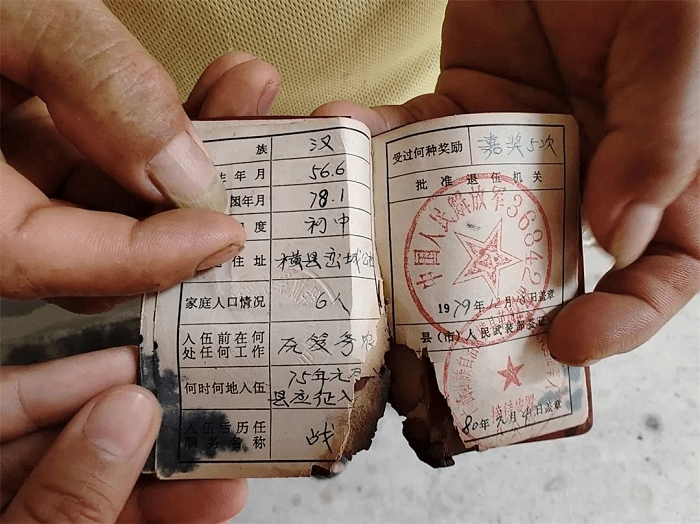 族 汉
生年月 56.6
年月 78.1
度 初中
住址 横县峦城公社
家庭人口情况 6人
入伍前在何处任何工作 在家务农
何时何地入伍 75年元月
县应征入
入伍后历任职务名称 战
受过何种奖励 嘉奖5次
批准退伍机关
中国人民解放军36342
1979年 月 日盖章
县(市)人民武装部签证
80年元月4日盖章